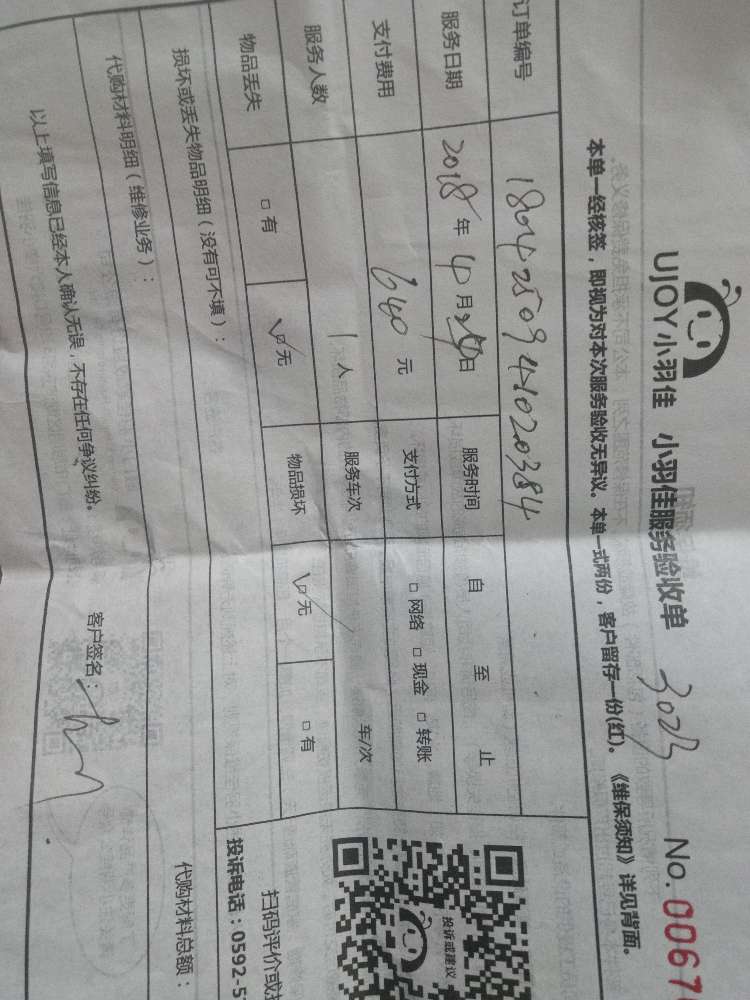 UJOY小羽佳 小羽佳服务验收单 No. 0067
本单一经核签，即视为对本次服务验收无异议。本单一式两份，客户留存一份(红)。《维保须知》详见背面。
订单编号 1804250941020384
服务日期 2018年4月 日 服务时间 自 至 止
支付费用 640元 支付方式 □ 网络 □ 现金 □ 转账
服务人数 1人 服务车次 车/次
物品丢失 □ 有 □ 无 物品损坏 □ 无 □ 有
损坏或丢失物品明细（没有可不填）：
投诉或建议
扫码评价或
投诉电话：0592-5
代购材料明细（维修业务）： 代购材料总额：
以上填写信息已经本人确认无误，不存在任何争议纠纷。 客户签名：